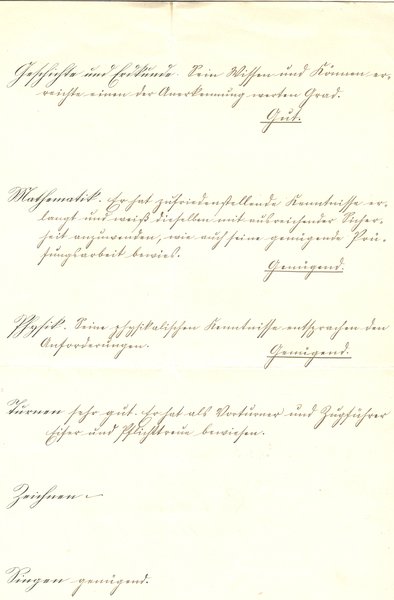 Geschichte und Erdkunde. Sein Wissen und Können er-
reichte einen der Anerkennung werten Grad.
Gut.
Mathematik. Er hat zufriedenstellende Kenntnisse er-
langt und weiß dieselben mit ausreichender Sicher-
heit anzuwenden, wie auch seine genügende Prü-
fungsarbeit bewies.
Genügend.
Physik. Seine physikalischen Kenntnisse entsprachen den
Anforderungen.
Genügend.
Turnen sehr gut. Er hat als Vorturner und Zugführer
Eifer und Pflichttreue bewiesen.
Zeichnen –
Singen genügend.